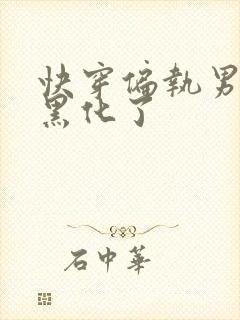 快穿偏執男
黑化了
石中華